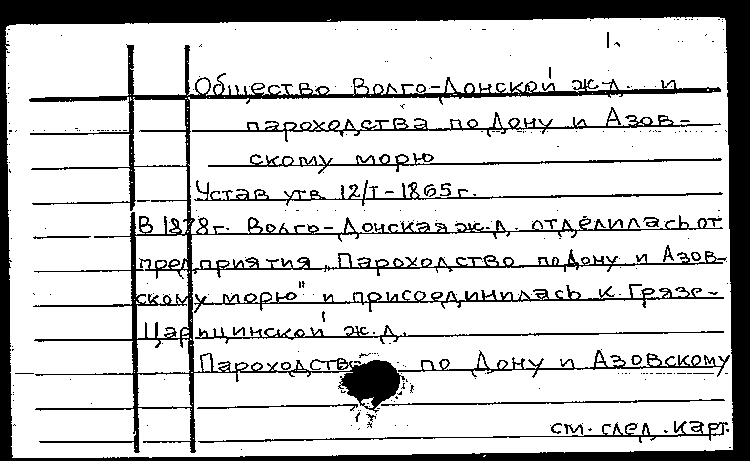 1.
Общество Волго-Донской ж.д. и
пароходства по Дону и Азов-
скому морю
Устав утв 12/I-1865г.
В 1878г. Волго-Донская ж.д. отделилась от
предприятия „Пароходство по Дону и Азов-
скому морю" и присоединилась к Грязе-
Царицинской ж.д.
Пароходство по Дону и Азовскому
см. след. карт.